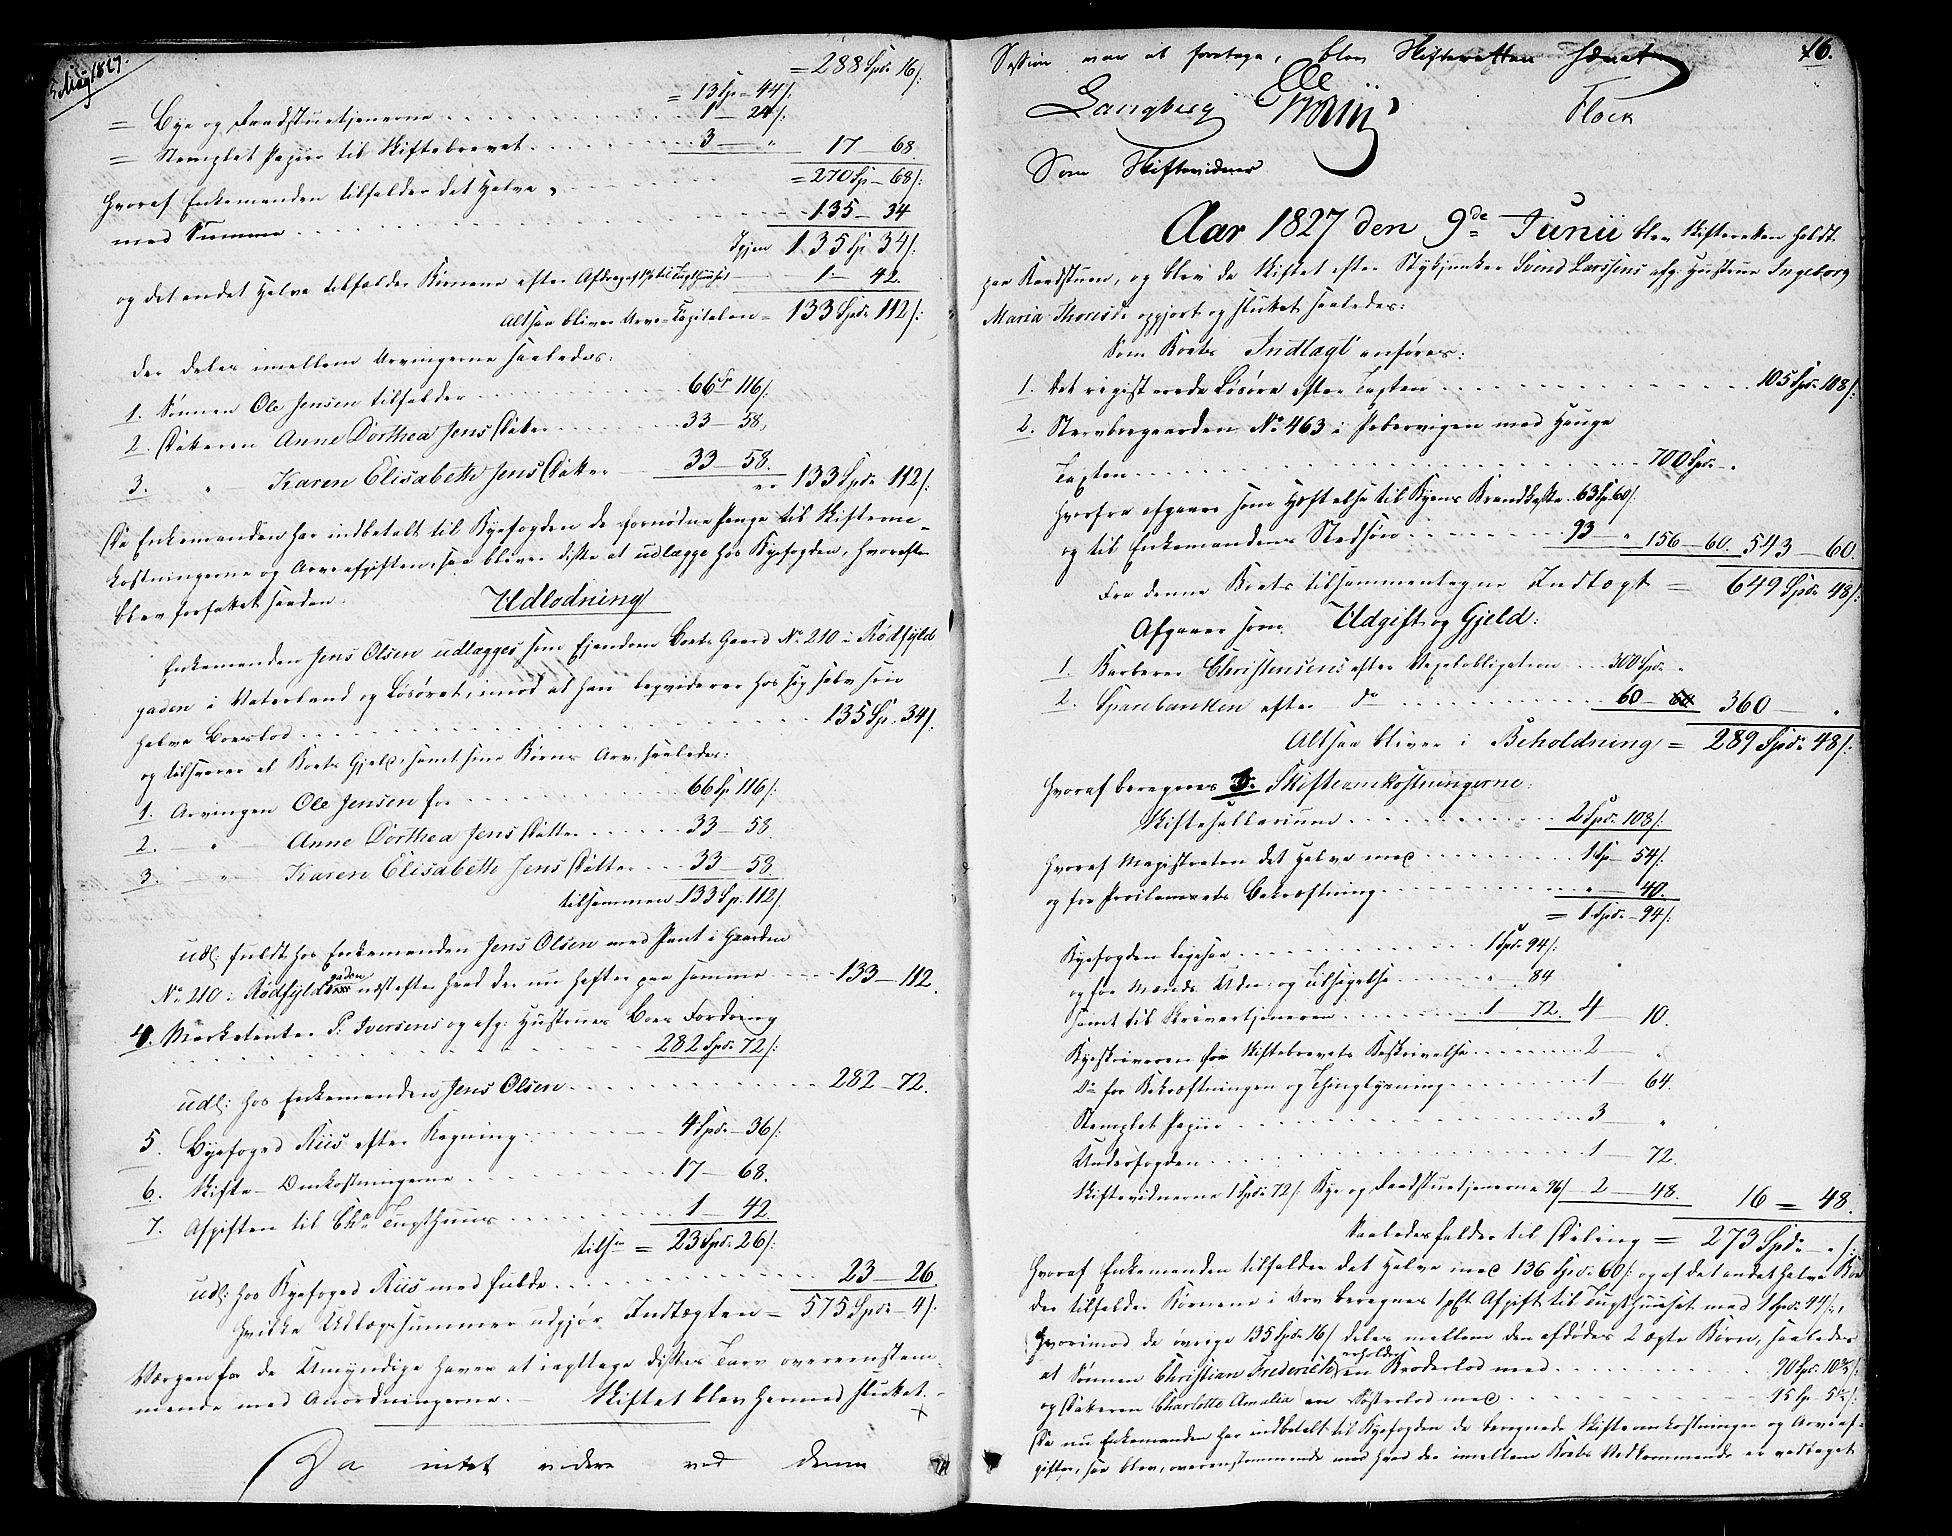 5 May 1827.
= 288 Spd. 16 /:
= 13 Sp = 44/:
= Bye og Raadstuetjenerne . . . 1 — 24/:
= Stemplet Papiir til Skiftebrevet . . . 3 — „ 17 — 68
= 270 Sp — 68/:
Hvoraf Enkemanden tilfalder det Halve,
med Summa . . . 135 — 34
Igjen 135 Sp 34/:
og det andet Halve tilfalder Børnene efter Afdrag af 1 pC til Tugthuuset 1 — 42.
Altsaa bliver Arve-Capitalen = 133 Spd. 112/:
der deles imellem Arvingerne saaledes:
1. Sønnen Ole Jensen tilfalder . . . 66 Sp 116/:
2. Datteren Anne Dorthea Jens Datter . . . 33 — 58,
3. „ Karen Elisabeth Jens Datter — 33 — 58.
er 133 Spd. 112/:
Da Enkemanden har indbetalt til Byefogden de fornødne Penge til Skifteom-
kostningerne og Arveafgiften, saa bliver disse at udlægge hos Byefogden, hvorefter
blev forfattet saadan
Udlodning
Enkemanden Jens Olsen udlægges som Eiendom Boets Gaard No 210 i Rødfyld
gaden i Vaterland og Løsøret, imod at han liqviderer hos sig selv sin
halve Boeslod . . . 135 Sp. 34/:
og tilsvarer al Boets Gjeld, samt sine Børns Arv, saaledes:
1. Arvingen Ole Jensen for . . . 66 Sp 116/:
2. — „ — Anne Dorthea Jens Datter . . . 33 — 58.
3. — „ — Karen Elisabeth Jens Datter . . . 33 — 58.
tilsammen 133 Sp. 112/:
udl: fuldt hos Enkemanden Jens Olsen med Pant i Gaarden
No 210 i Rødfyldgaden næst efter hvad der nu hefter paa samme . . . 133 — 112.
4. Marketenter P: Iversens og afg: Hustrues Boes Fordring
. . . 282 Spd. 72/:
udl: hos Enkemanden Jens Olsen . . . 282 — 72.
5. Byefoged Riis efter Regning . . . 4 Spd. — 36/:
6. Skifte-Omkostningerne . . . 17 — 68.
7. Afgiften til Chra Tugthuus . . . 1 — 42
tilsn = 23 Spd. 26/:
udl: hos Byefoged Riis med fulde . . . 23 — 26.
Hvilke Udlægssummer udgjør Indtægten = 575 Spd. — 4/:
Værgen for de Umyndige haver at iagttage disses Tarv overeenstem-
mende med Anordningerne. — Skiftet blev hermed sluttet. —
Da intet videre ved denne
16.
Session var at foretage, blev Skifteretten hævet
Langberg Elle Flock
Som Skiftevidner
Aar 1827 den 9de Junii blev Skifteretten holdt
paa Raadstuen, og blev da Skiftet efter Stykjunker Svend Larssens afg: Hustrue Ingeborg
Maria Thorisdr opgjort og sluttet saaledes:
Som Boets Indtægt anføres:
1. Det registrerede Løsøre efter Taxten . . . 105 Spd. 108/:
2. Stervboegaarden No 463 i Pebervigen med Hauge
Taxten . . . 700 Spd. „
hvorfra afgaaer som Heftelse til Byens Brandkasse 63 Sp 60/:
og til Enkemandens Stedsøn . . . 93 — „ 156 — 60. 543 — 60.
Er denne Boets tilsammentagne Indtægt = 649 Spd. 48/:
Afgaaer som Udgift og Gjeld:
1. Barberer Christensens efter Vexelobligation . . . 300 Spd. „
2. Sparebanken efter do . . . 60 — 360 — „
Altsaa bliver i Beholdning = 289 Spd. 48/:
Hvoraf beregnes 3. Skifteomkostningerne:
Skiftesallarium . . . 2 Spd. 108/:
Hvoraf Magistraten det Halve med . . . 1 Sp — 54/:
og for Proclamaets Bekræftning . . . „ — 40.
= 1 Spd. — 94/:
Byefogden ligesaa . . . 1 Spd. 94/:
og for Mænds Udn: og Tilsigelse . . . „ 84
samt til Skrivertjeneren . . . 1 — 72. 4 — 10.
Byeskriveren for Skiftebrevets Beskrivelse . . . 2 — „
Do for Bekræftningen og Thinglysning . . . 1 — 64.
Stemplet Papiir . . . 3 — „
Underfogden . . . 1 — 72.
Skiftevidnerne 1 Spd. 72/: Bye og Raadstuetjenerne 96/: 2 — 48. 16 = 48.
Saaledes falder til Deling = 273 Spd. — „ /:
Hvoraf Enkemanden tilfalder det Halve med 136 Spd. 60/: og af det andet Halve
der tilfalder Børnene i Arv beregnes 1 pCt Afgift til Tugthuuset med 1 Spd. 44/:,
hvorimod de øvrige 135 Spd. 16/ deles mellem den afdødes 2 ægte Børn, saaledes
at Sønnen Christian Frederich erholder en Broderlod med . . . 90 Spd. 10⅔/:
og Datteren Charlotte Amalia en Søsterlod med . . . 45 Sp 5⅓/:
Da nu Enkemanden har indbetalt til Byefogden de beregnede Skifteomkostninger og Arveaf-
gifter, saa blev, overeenstemmende med hvad der imellem Boets Vedkommende er vedtaget